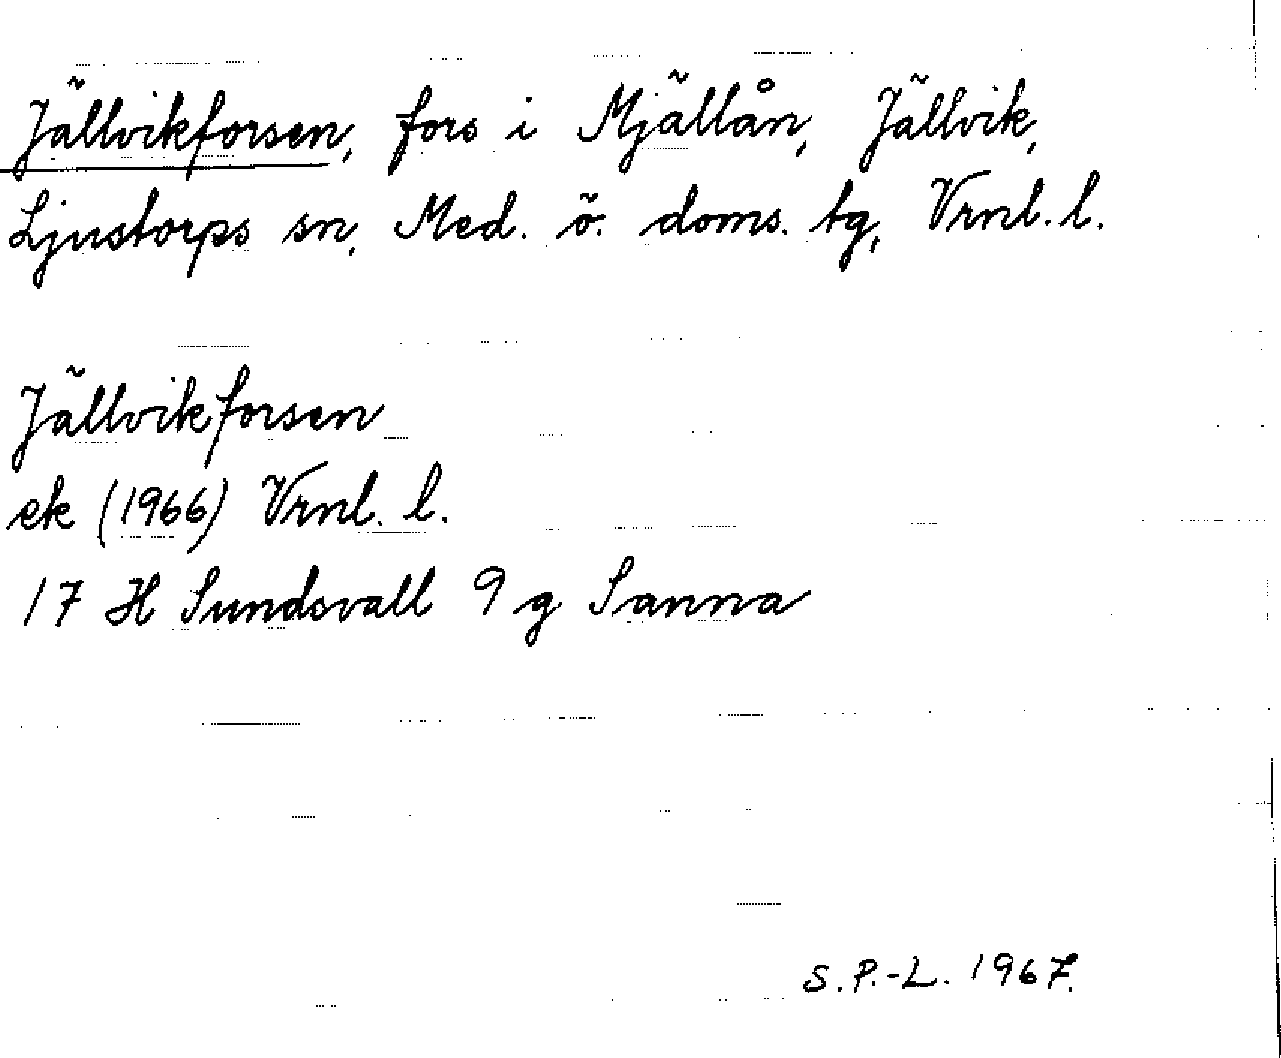 Jällvikforsen, fors i Mjällån, Jällvik,
Ljustorps sn, Med. ö. doms. tg, Vrnl. l.
Jällvikforsen
ek (1966) Vrnl. l.
17 H Sundsvall 9 g Sanna
S.P.-L. 1967.